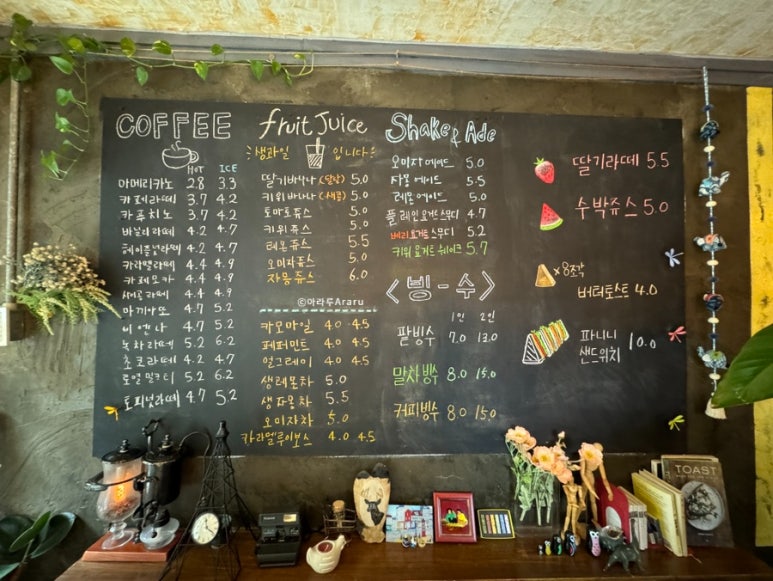 COFFEE
HOT ICE
아메리카노 2.8 3.3
카페라떼 3.7 4.2
카푸치노 3.7 4.2
바닐라라떼 4.2 4.7
헤이즐넛라떼 4.2 4.7
카라멜라떼 4.4 4.9
카페모카 4.4 4.9
라떼 4.4 4.9
마끼아또 4.7 5.2
비엔나 4.7 5.2
녹차라떼 5.2 6.2
초코라떼 4.2 4.7
로얄밀크티 5.2 6.2
토피넛라떼 4.7 5.2
fruit Juice
생과일 입니다
딸기바나나 5.0
키위바나나 5.0
토마토쥬스 5.0
키위쥬스 5.0
쥬스 5.5
오미자쥬스 5.0
자몽쥬스 6.0
©아라루Araru
카모마일 4.0 4.5
페퍼민트 4.0 4.5
얼그레이 4.0 4.5
생레몬차 5.0
생자몽차 5.5
오미자차 5.0
카라멜루이보스 4.0 4.5
Shake & Ade
오미자에이드 5.0
자몽에이드 5.5
레몬에이드 5.0
플레인요거트스무디 4.7
베리요거트스무디 5.2
키위요거트쉐이크 5.7
<빙-수>
1인 2인
팥빙수 7.0 13.0
말차빙수 8.0 15.0
커피빙수 8.0 15.0
딸기라떼 5.5
수박쥬스 5.0
×8조각
버터토스트 4.0
파니니
샌드위치 10.0
TOAST